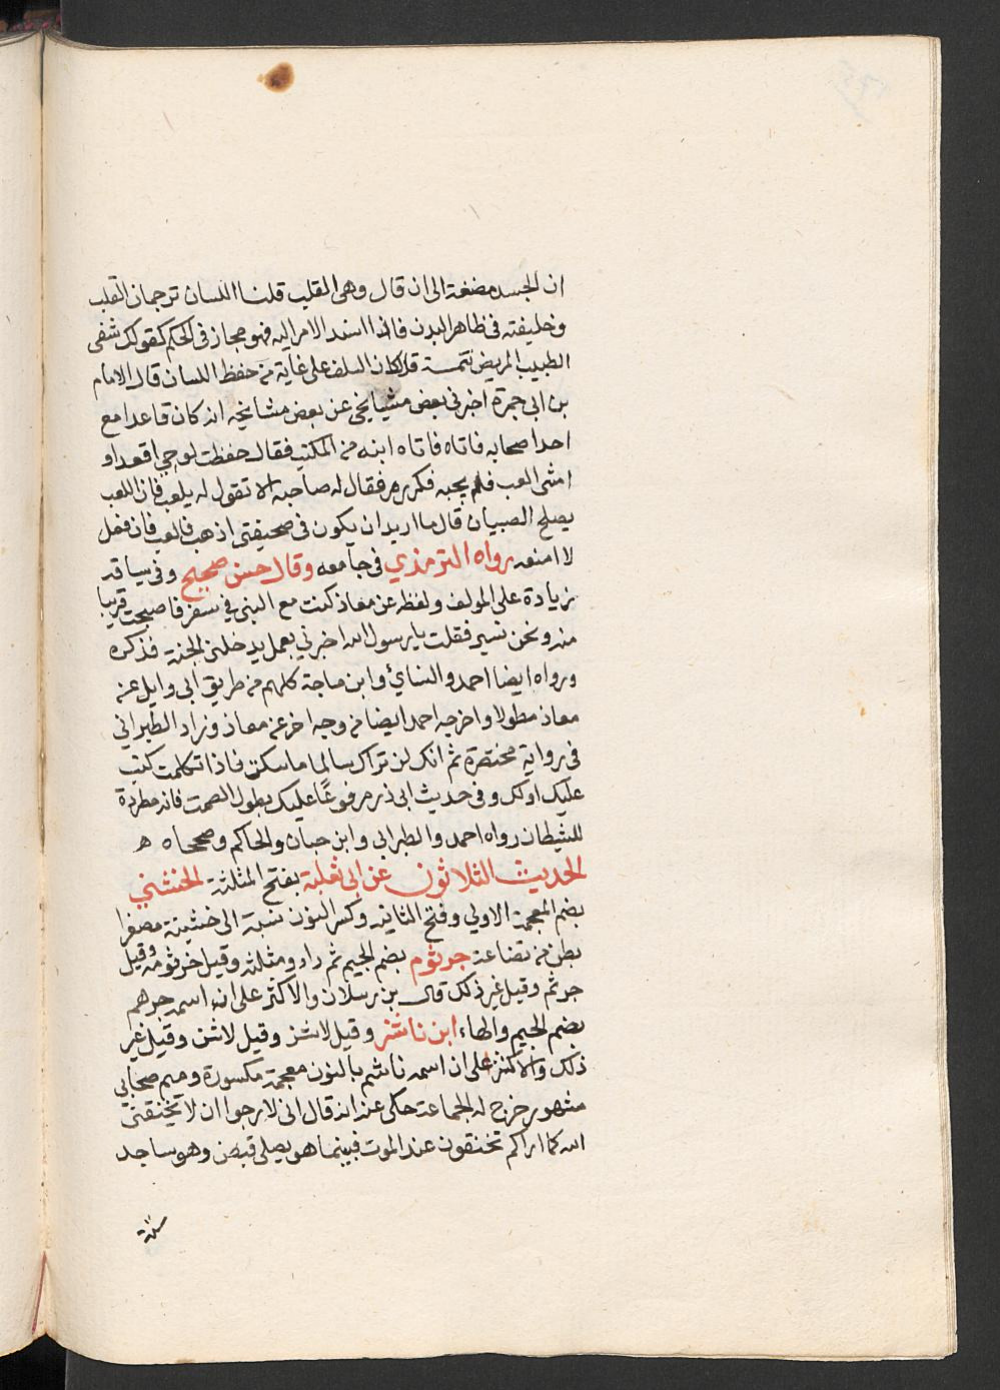 ان الجسد مضغة الى ان قال وهى القلب قلنا اللسان ترجمان القلب
وخليفته فى ظاهر البدن فاذا اسند الامر اليه فهو مجاز فى الحكم كقولك شفى
الطبيب المريض تتمة قد كان السلف على غاية من حفظ اللسان قال الامام
بن ابى جمرة اخبرنى بعض مشيايخى عن بعض مشايخه انه كان قاعدا مع
احد اصحابه فاتاه فاتاه ابنه من المكتب فقال حفظت لوحي اقعد او
امشى العب فلم يجبه فكرر مر فقال له صاحبه الا تقول له يلعب فان اللعب
يصلح الصبيان قال ما اريد ان يكون فى صحيفتى اذهب فالعب فان فعل
لا امنعه رواه الترمذي فى جامعه وقال حسن صحيح وفى سياقه
زيادة على المولف ولفظه عن معاذ كنت مع النبى في سفر فاصبحت قريبا
منه ونحن نسير فقلت يا رسول الله اخبرني بعمل يدخلنى الجنة فذكره
ورواه ايضا احمد والنسائ وابن ماجة كلهم من طريق ابى وايل عنه
معاذ مطولا واخرجه احمد ايضا من وجه اخر عنه معاذ وزاد الطبراني
فى رواية مختصرة ثم انك لن تراك سالما ما سكت فاذا تكلمت كتب
عليك او لك وفى حديث ابى ذر مرفوعًا عليك بطول الصمت فانه مطردة
للشيطان رواه احمد والطبرانى وابن حبان والحاكم وصححاه ه
الحديث الثلاثون عن ابى ثعلبة بفتح المثلثة الخشني
بضم المعجمة الاولي وفتح الثانيه وكسر النون نسبة الى خشينة مصغرا
بطن من قضاعة جرثوم بضم الجيم ثم راء ومثلثه وقيل خرثومه وقيل
جرثم وقيل غير ذلك قال بن رسلان والاكثر على انه اسمه جرهم
بضم الجيم والهاء ابن ناشر وقيل لاشر وقيل لاشن وقيل غير
ذلك والاكثر على ان اسمه ناشم بالنون معجمة مكسورة وميم صحابي
مشهور خرج له الجماعة حكى عنه انه قال انى لارجوا ان لا يخنقنى
الله كما اراكم تخنقون عند الموت فبينما هو يصلى قبض وهو ساجد
سنة